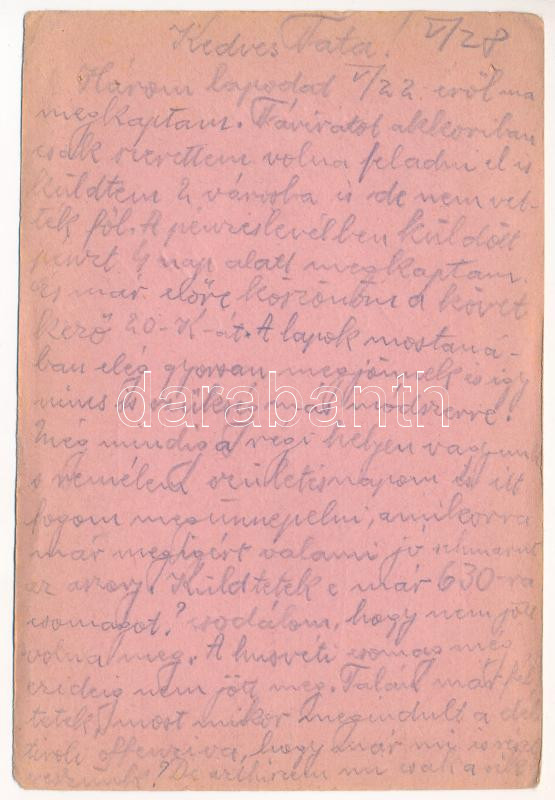 Kedves Tata! V/28
Három lapodat V/22.-eről ma
megkaptam. Táviratot akkoriban
csak szerettem volna feladni el is
küldtem 2 városba is de nem vet-
ték föl. A pénzeslevélben küldött
pénzt 4 nap alatt megkaptam.
És már előre köszönöm a követ
kező 20-K-át. A lapok mostaná-
ban elég gyorsan megjönnek és így
nincs is szükség más módszerre.
Még mindig a régi helyen vagyunk
s remélem születésnapom is itt
fogom megünnepelni, amikorra
már megígért valami jó
az Küldtetek e már 630-ra
csomagot? csodálom, hogy nem jött
volna meg. A husvéti csomag még
ezideig nem jött meg. Talán már
tetek, most mikor megindult a dél
tiroli offenziva, hogy már mi is részt
veszünk? De azt hiszem mi csak a
darabanth